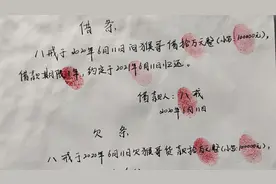 借条
八戒于2020年6月11日向猴哥借拾万元整(小写:100000元),
借款期限1年,约定于2021年6月11日归还。
借款人:八戒
2020年6月11日
欠条
八戒于2020年6月11日欠猴哥货款拾万元整(小写:100000元),